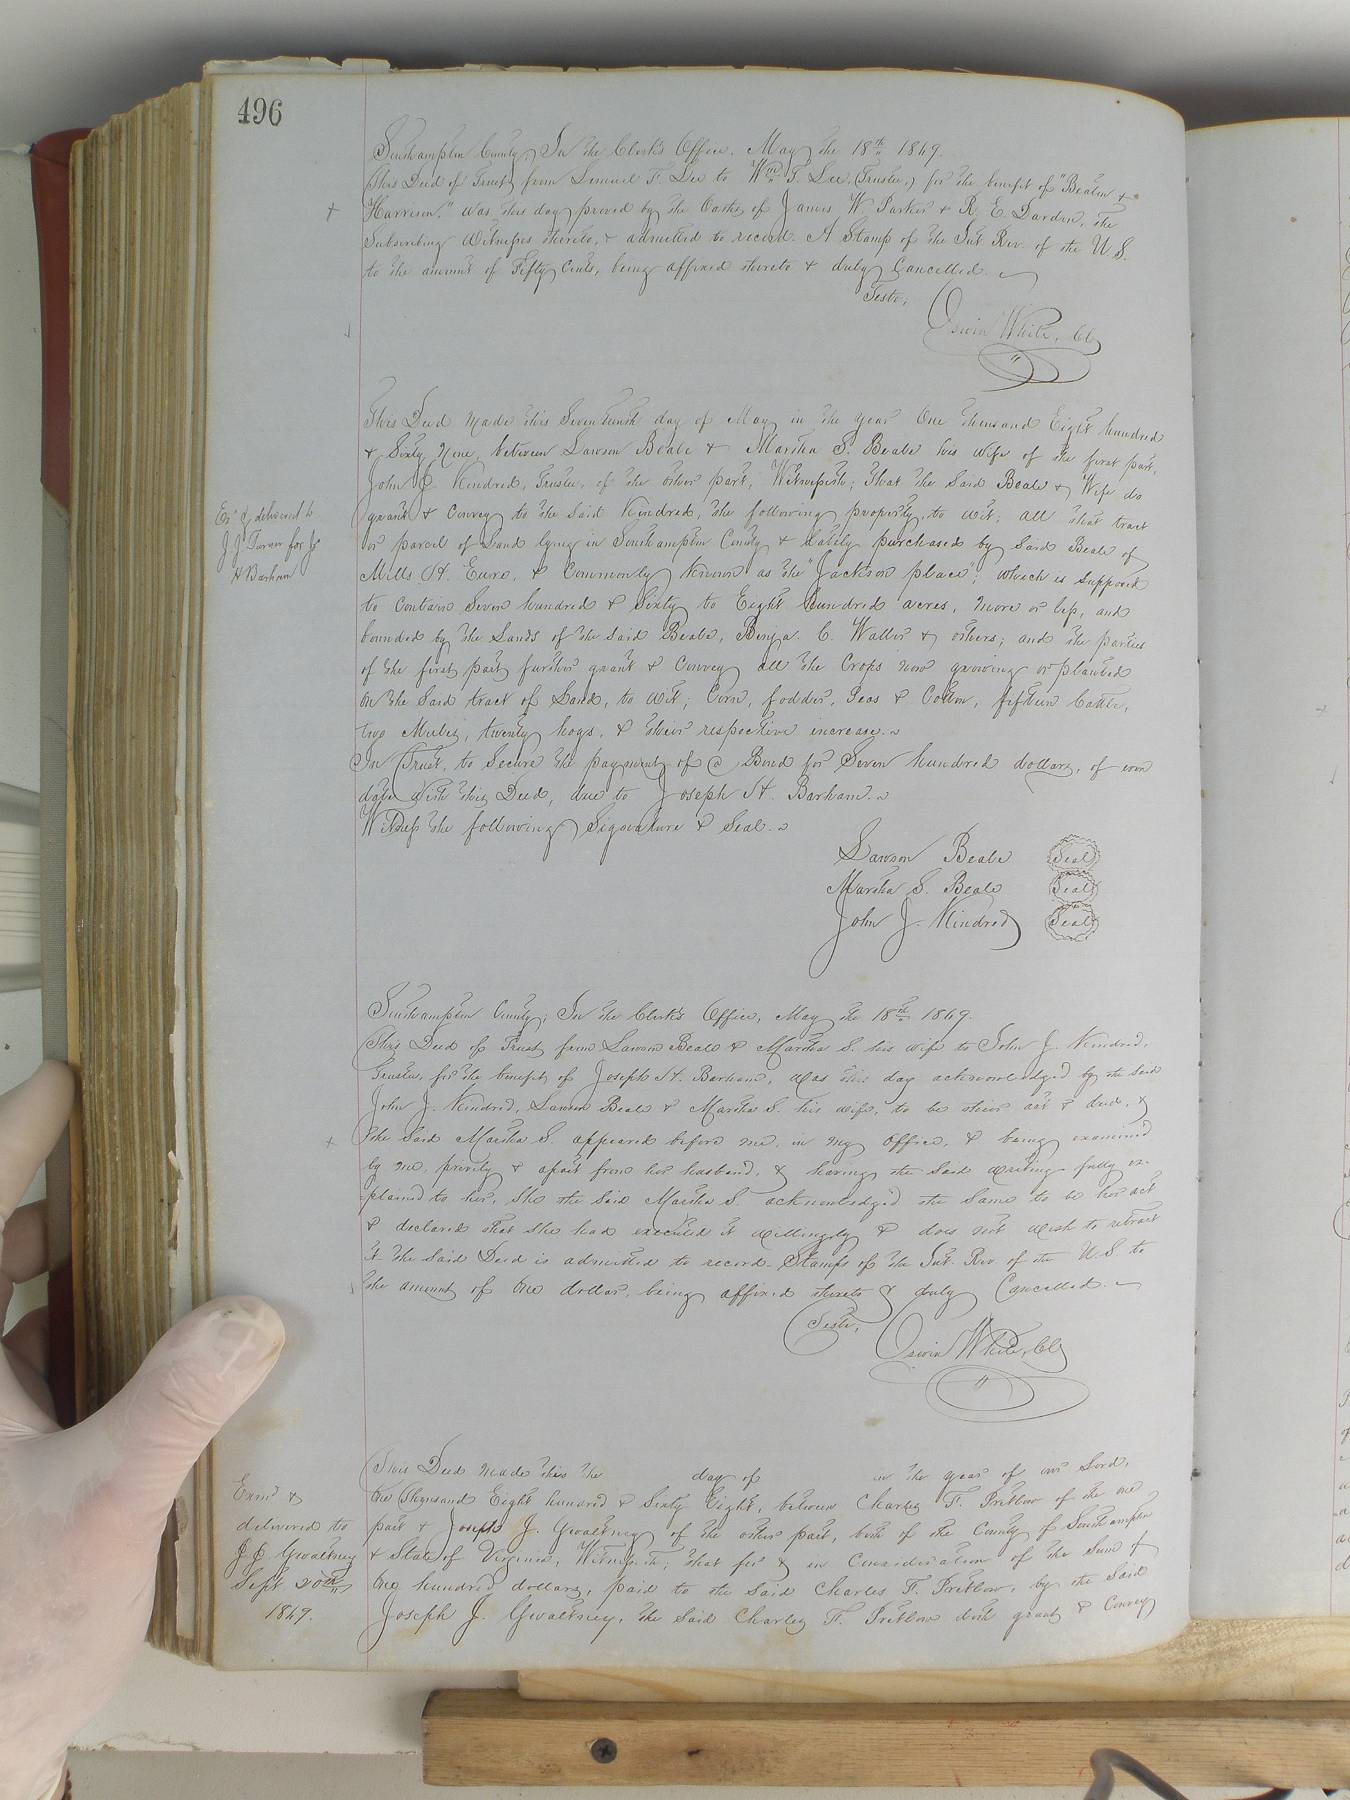 496
Southampton County, In the Clerk's Office, May the 18th 1869.
This Deed of Trust from Lemuel F. Lee to Wm T. Lee (Trustee,) for the benefit of "Beaton &
Harrison." was this day proved by the Oaths of James W Parker & R. E. Darden, the
Subscribing Witnesses thereto, & admitted to record. A Stamp of the Int. Rev. of the U. S.
to the amount of Fifty Cents, being affixed thereto & duly Cancelled.
Teste,
Oswin White, Clk
This Deed made this Seventeenth day of May in the year One thousand Eight hundred
& Sixty Nine, between Lawson Beale & Martha S. Beale his Wife of the first part,
John J. Kindred, Trustee, of the other part, Witnesseth; That the Said Beale & Wife do
grant & Convey to the Said Kindred, the following property, to wit; all that tract
or parcel of Land lying in Southampton County & lately purchased by Said Beale of
Mills H. Eure, & Commonly Known as the "Jackson place"; which is Supposed
to Contain Seven hundred & Sixty to Eight hundred acres, more or less, and
bounded by the Lands of the Said Beale, Benja. C. Waller & others; and the parties
of the first part further grant & Convey all the Crops now growing or planted
on the Said tract of Land, to wit; Corn, fodder, Peas & Cotton, fifteen Cattle,
two Mules, twenty hogs, & their respective increase.
In Trust, to Secure the payment of a Bond for Seven hundred dollars, of even
date With this Deed, due to Joseph H. Barham.
Witness the following Signature & Seal.
Lawson Beale Seal
Martha S. Beale Seal
John J. Kindred Seal
Exd & delivered to
J. J. Turner for Js
H Barham
Southampton County; In the Clerk's Office, May the 18th 1869.
This Deed of Trust from Lawson Beale & Martha S. his wife to John J. Kindred,
Trustee, for the benefit of Joseph H. Barham, was this day acknowledged by the Said
John J. Kindred, Lawson Beale & Martha S. his wife, to be their act & deed, &
the Said Martha S. appeared before me, in my office, & being examined
by me, privily & apart from her husband, & having the Said writing fully ex-
plained to her, She the Said Martha S. acknowledged the Same to be her act
& declared that She had executed it willingly & does not wish to retract
it the Said Deed is admitted to record. Stamps of the Int. Rev. of the U.S. to
the amount of One dollar, being affixed thereto & duly Cancelled.
Teste,
Oswin White, Clk
This Deed made this the day of in the year of our Lord,
One Thousand Eight hundred & Sixty Eight, between Charles F. Pretlow of the one
part & Joseph J. Gwaltney of the other part, both of the County of Southampton
& State of Virginia, Witnesseth; that for & in Consideration of the Sum of
One hundred dollars, paid to the Said Charles F. Pretlow, by the Said
Joseph J. Gwaltney, the Said Charles F. Pretlow doth grant & Convey
Examd &
delivered to
J. J. Gwaltney
Sept 20th
1869.